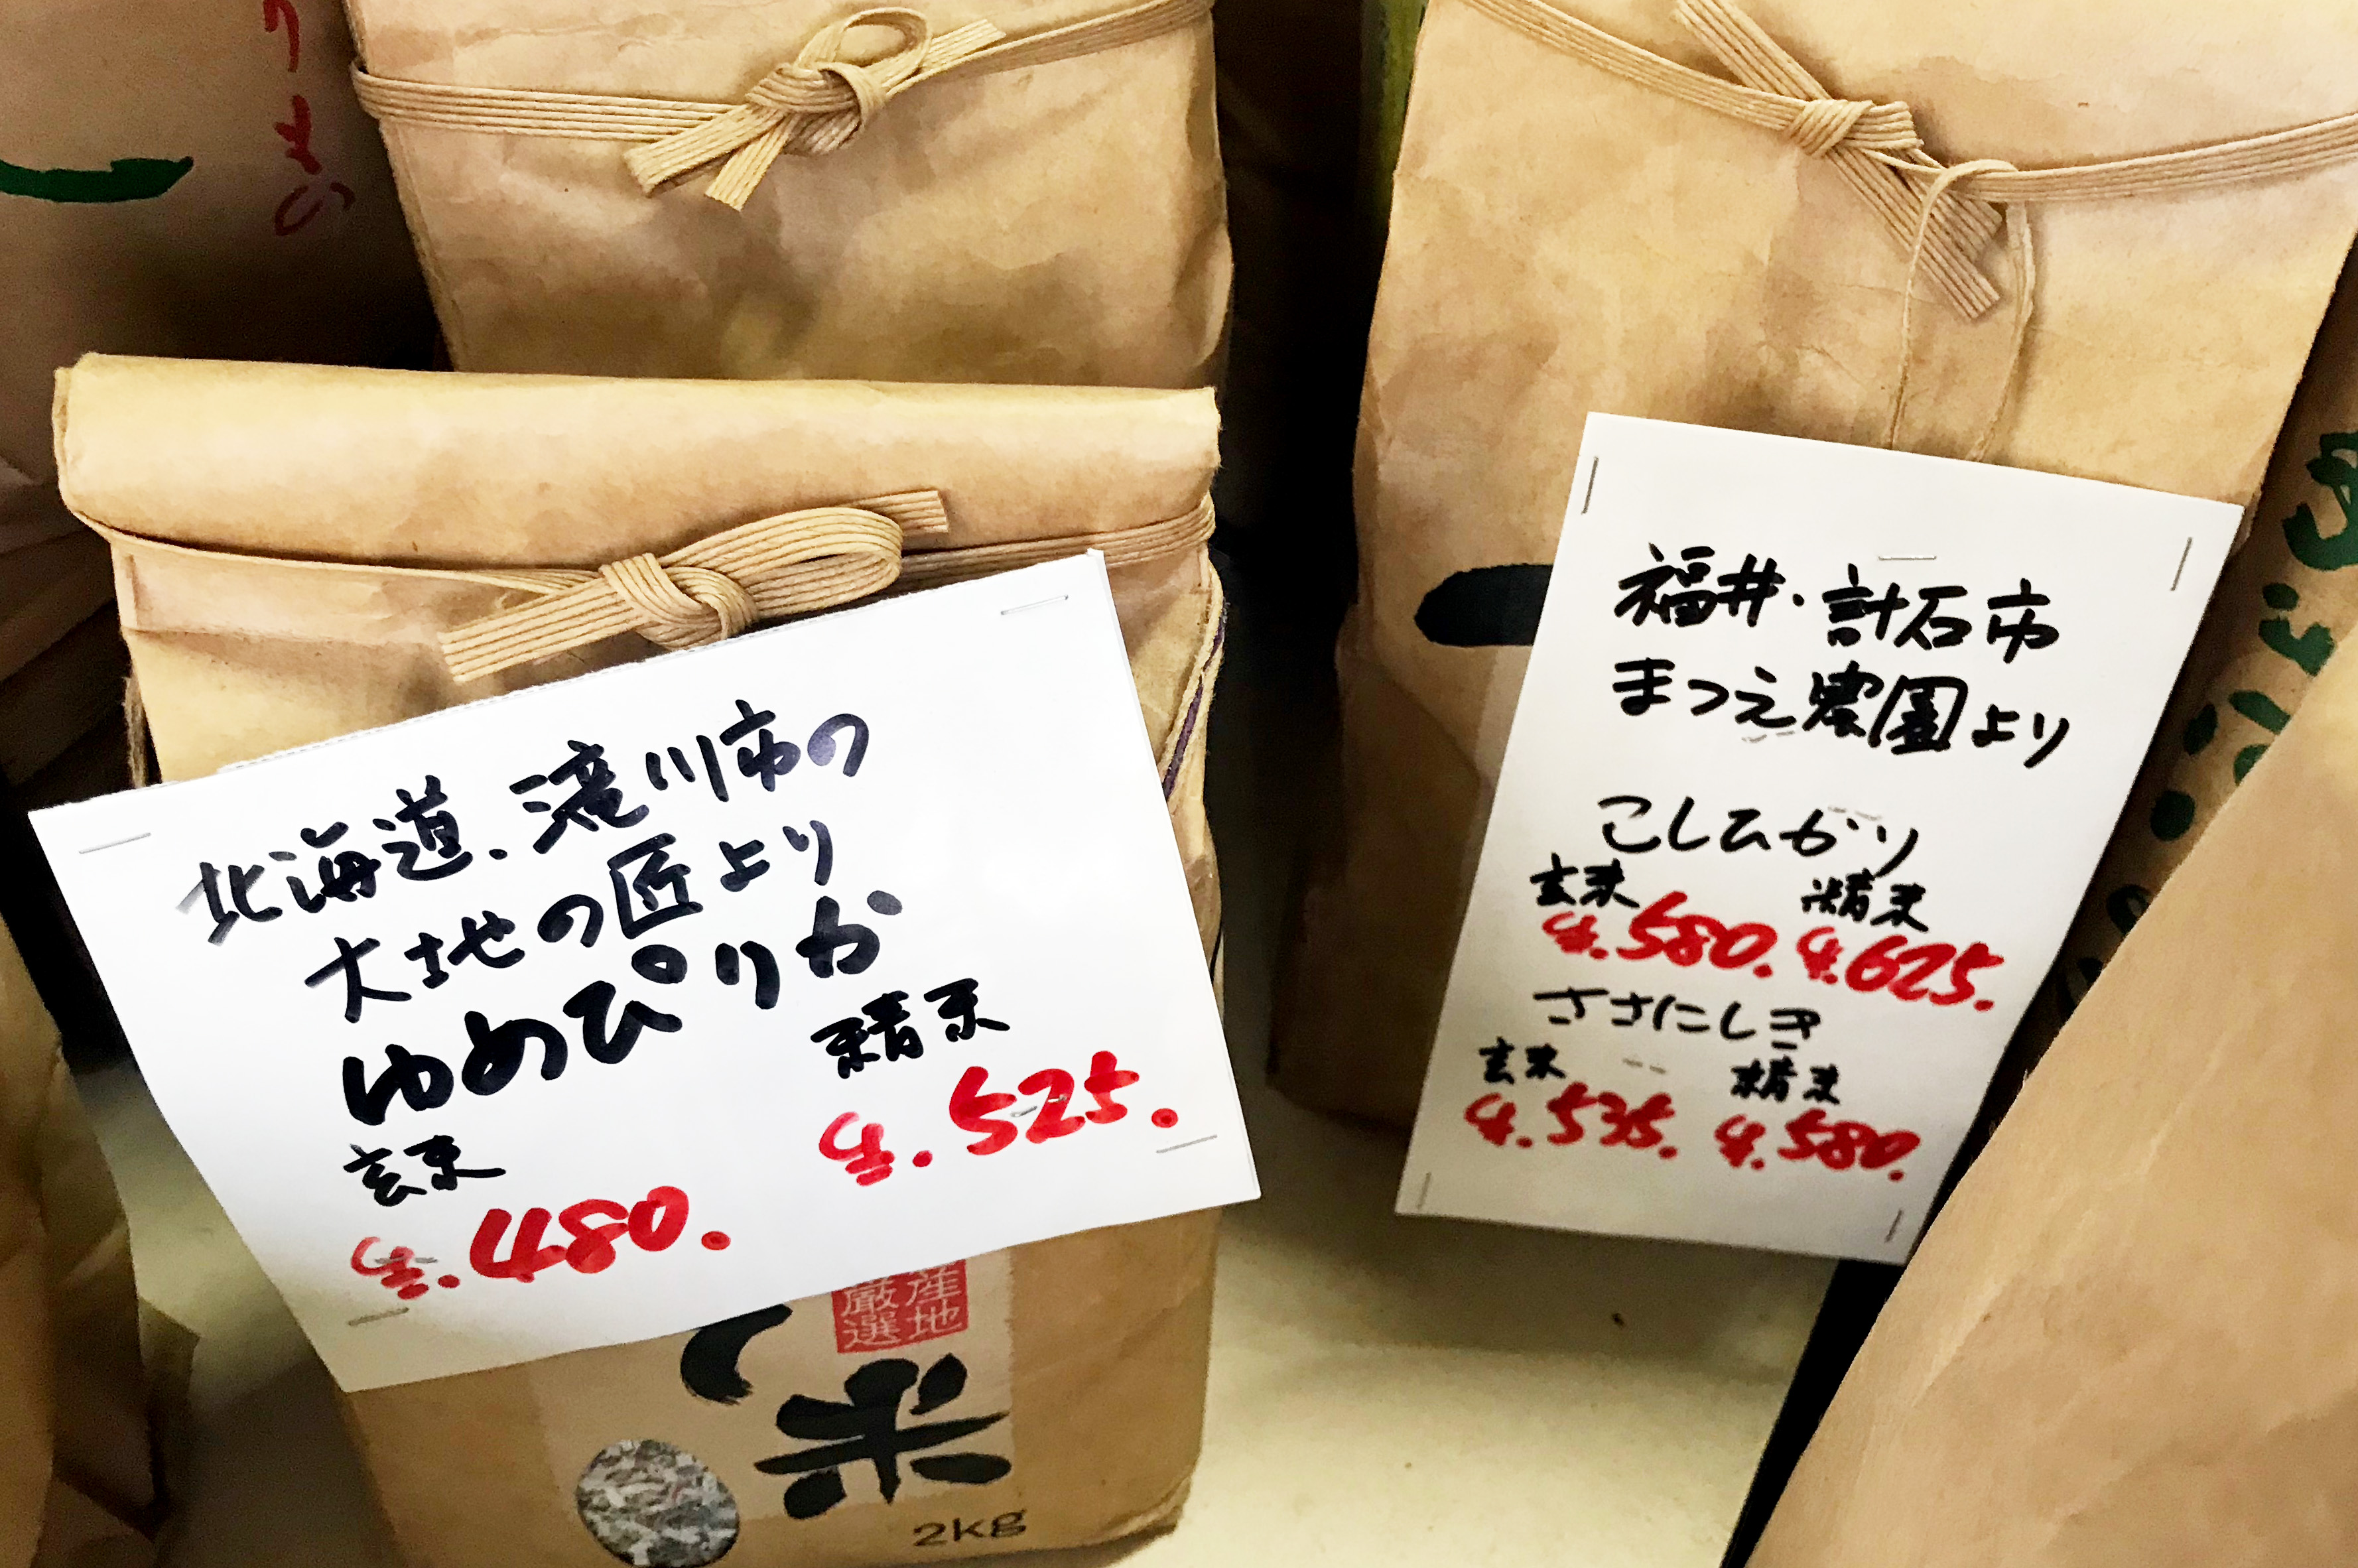 北海道.滝川市の
大地の匠より
ゆめぴりか
玄米
精米
¥.480.
¥.525.
産地
厳選
米
2kg
福井.計石市
まつえ農園より
こしひかり
玄米 精米
¥.580. ¥.625.
ささにしき
玄米 精米
¥.535. ¥.580.